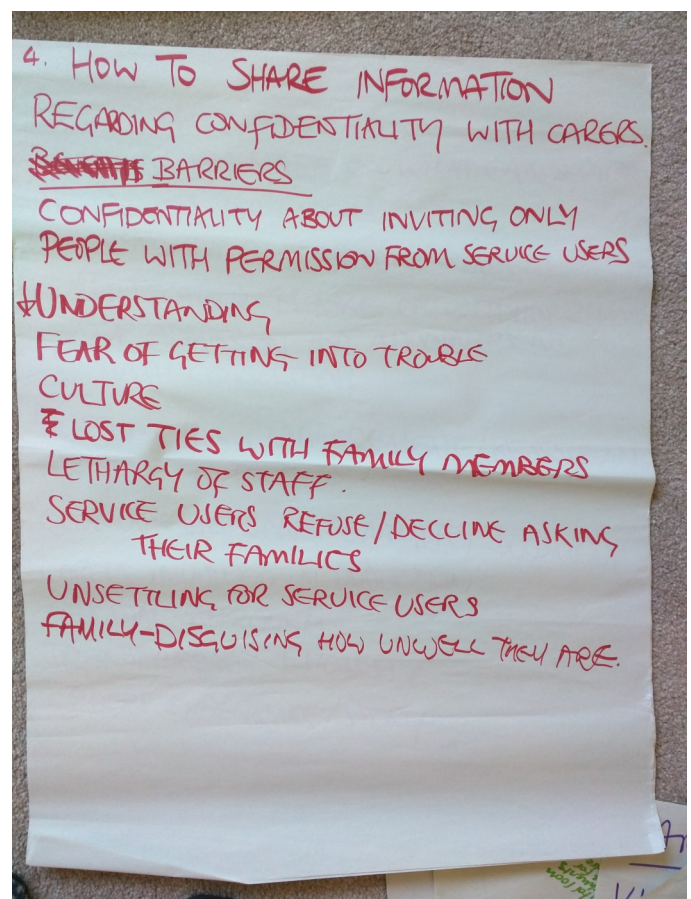 4. HOW TO SHARE INFORMATION
REGARDING CONFIDENTIALITY WITH CARERS.
BARRIERS
CONFIDENTIALITY ABOUT INVITING ONLY
PEOPLE WITH PERMISSION FROM SERVICE USERS
↓UNDERSTANDING
FEAR OF GETTING INTO TROUBLE
CULTURE
LOST TIES WITH FAMILY MEMBERS
LETHARGY OF STAFF.
SERVICE USERS REFUSE/DECLINE ASKING
THEIR FAMILIES
UNSETTLING FOR SERVICE USERS
FAMILY-DISGUISING HOW UNWELL THEY ARE.